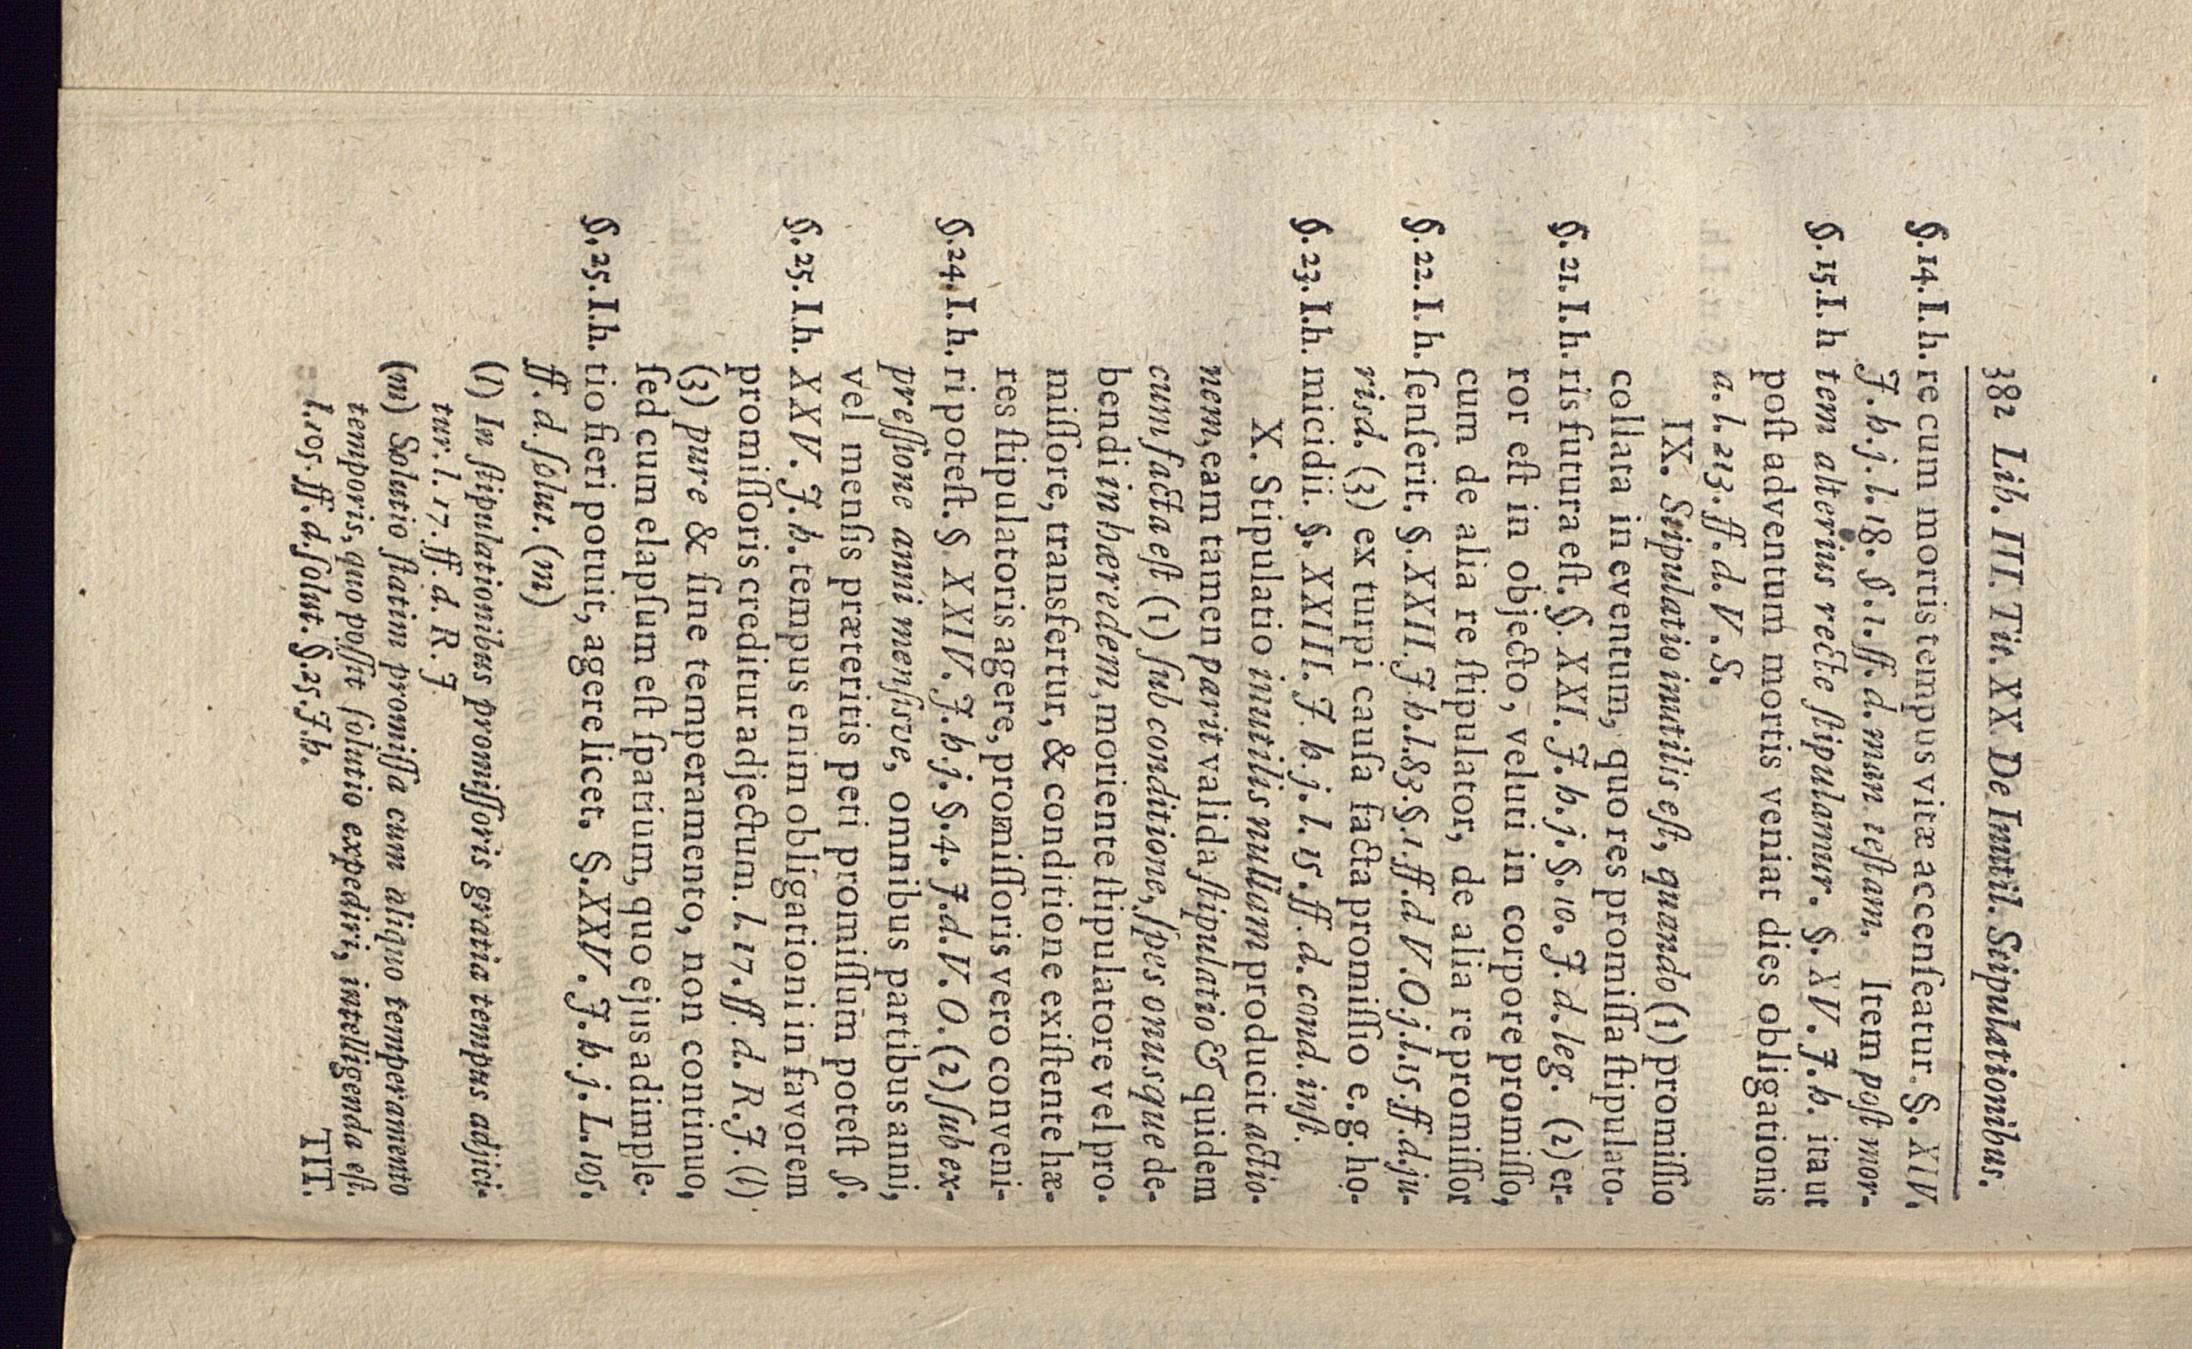 382 Lib. III. Tit. XX De Inutil. Stipulationibus.
§. 14. I. h. re cum mortis tempus vitæ accenſeatur. §. XIV.
J. h. j. l. 18. §. 1. ff. d. man teſtam. Item poſt mor-
§. 15. I. h tem alterius recte ſtipulamur. §. XV. J. h. ita ut
poſt adventum mortis veniat dies obligationis
a. l. 213. ff. d. V. S.
IX. Stipulatio inutilis eſt, quando (1) promiſſio
collata in eventum, quo res promiſſa ſtipulato-
§. 21. I. h. ris futura eſt. §. XXI. J. h. j. §. 10. J. d. leg. (2) er-
ror eſt in objecto, veluti in corpore promiſſo,
cum de alia re ſtipulator, de alia re promiſſor
§. 22. I. h. ſenſerit. §. XXII. J h. l. 83. §. 1. ff. d V. O. j. l. 15. ff. d. ju-
risd. (3) ex turpi cauſa facta promiſſio e. g. ho-
§. 23. I. h. micidii. §. XXIII. J. h. j. l. 15. ff. d. cond. inſt.
X. Stipulatio inutilis nullam producit actio-
nem, eam tamen parit valida ſtipulatio & quidem
cum facta eſt (1) ſub conditione, ſpes onusque de-
bendi in hæredem, moriente ſtipulatore vel pro-
miſſore, transfertur, & conditione exiſtente hæ-
res ſtipulatoris agere, promiſſoris vero conveni-
§. 24. I. h. ri poteſt. §. XXIV. J. h. j. §. 4. J. d. V. O. (2) ſub ex-
preſſione anni menſisve, omnibus partibus anni,
vel menſis præteritis peti promiſſum poteſt §.
§. 25. I. h. XXV. J. h. tempus enim obligationi in favorem
promiſſoris creditur adjectum. l. 17. ff. d. R. J. (l)
(3) pure & ſine temperamento, non continuo,
ſed cum elapſum eſt ſpatium, quo ejus adimple-
§. 25. I. h. tio fieri potuit, agere licet. §. XXV. J. h. j. L. 105.
ff. d. ſolut. (m)
(l) In ſtipulationibus promiſſoris gratia tempus adjici-
tur. l. 17. ff. d. R. J.
(m) Solutio ſtatim promiſſa cum aliquo temperamento
temporis, quo poſſit ſolutio expediri, intelligenda eſt.
l. 105. ff. d. ſolut. §. 25. J. h.
TIT.